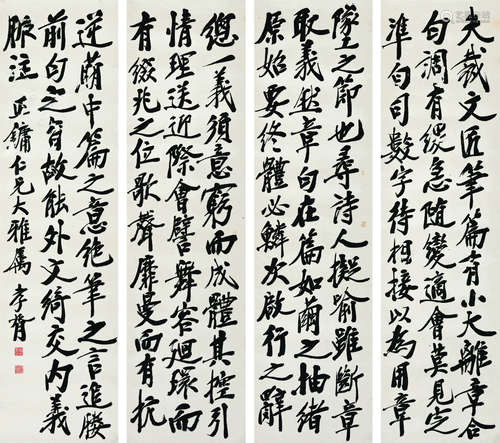 夫裁文匠筆篇有小大離章合
句調有緩急隨變適會莫見定
準句司數字待相接以為用章
墜之節也尋詩人擬喻雖斷章
取義然章句在篇如繭之抽緒
原始要終體必鱗次啟行之辭
總一義須意窮而成體其控引
情理送迎際會譬舞容迴環而
有綴兆之位歌聲靡曼而有抗
逆萌中篇之意絕筆之言追媵
前句之旨故能外文綺交內義
脈注 鏞仁兄大雅屬 孝胥